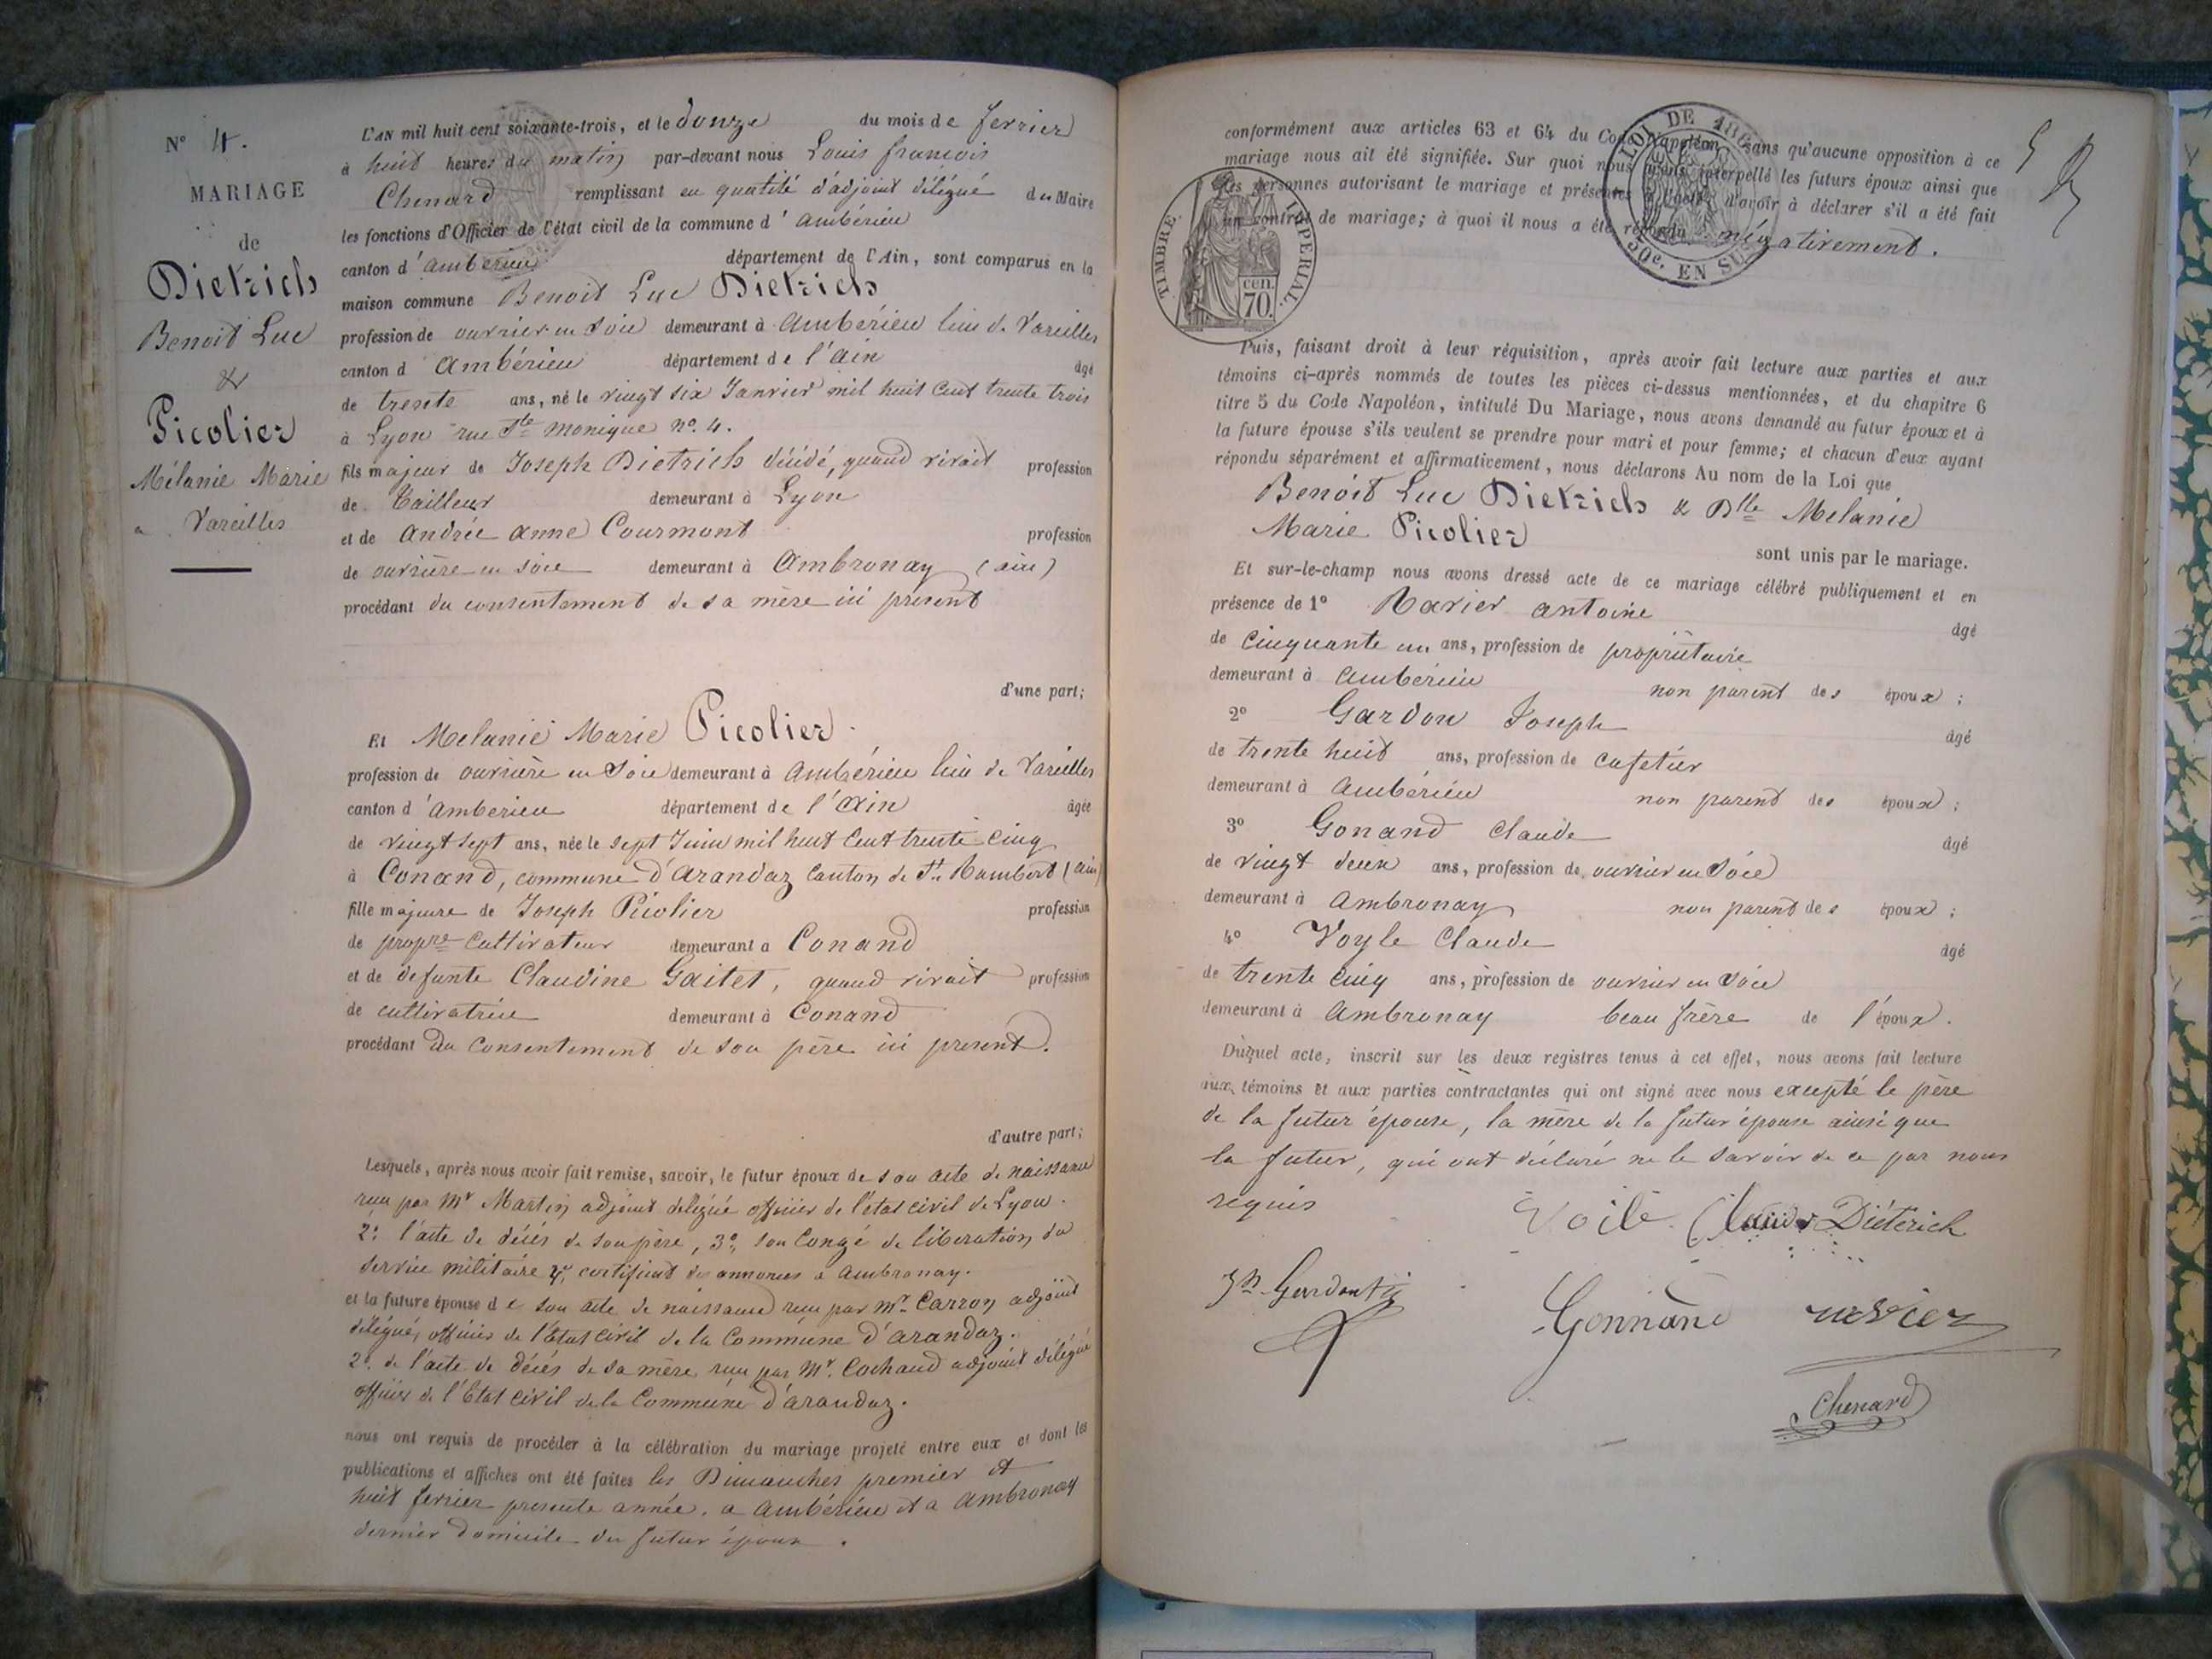 N° 4.
MARIAGE
de
Dietrich
Benoit Luc
&
Picolier
Mélanie Marie
a Vareilles
L'AN mil huit cent soixante-trois, et le douze du mois de fevrier
à huit heures du matin par-devant nous Louis francois
Chenard remplissant en qualité d'adjoint délégué du Maire
les fonctions d'Officier de l'état civil de la commune d'ambérieu
canton d'ambérieu département de l'Ain, sont comparus en la
maison commune Benoit Luc Dietrich
profession de ouvrier en soie demeurant à ambérieu lieu de Vareilles
canton d ambérieu département de l'ain âgé
de trente ans, né le vingt six Janvier mil huit cent trente trois
à Lyon rue Ste Monique no. 4.
fils majeur de Joseph Dietrich décédé, quand vivait profession
de tailleur demeurant à Lyon
et de andrée anne Courmont profession
de ouvrière en soie demeurant à Ambronay (ain)
procédant du consentement de sa mère ici present
d'une part;
Et Melanie Marie Picolier.
profession de ouvrière en soie demeurant à ambérieu lieu de Vareilles
canton d'amberieu département de l'ain âgée
de vingt sept ans, née le sept Juin mil huit cent trente cinq
à Conand, commune d'arandaz canton de St Rambert (ain)
fille majeure de Joseph Picolier profession
de propre cultivateur demeurant a Conand
et de defunte Claudine Gaitet, quand vivait profession
de cultivatrice demeurant à Conand
procédant du consentement de son père ici present.
d'autre part;
Lesquels, après nous avoir fait remise, savoir, le futur époux de son acte de naissance
reçu par Mr Martin adjoint délégué officier de l'état civil de Lyon.
2° l'acte de décés de son père, 3° son congé de libération du
service militaire 4° certificat des annonces a ambronay.
et la future épouse de son acte de naissance reçu par Mr Carron adjoint
délégué, officier de l'Etat civil de la commune d'arandaz.
2° de l'acte de décés de sa mère reçu par Mr Cochand adjoint délégué
officier de l'Etat civil de la Commune d'arandaz.
nous ont requis de procéder à la célébration du mariage projeté entre eux et dont les
publications et affiches ont été faites les Dimanches premier et
huit fevrier presente année, a ambérieu et a ambronay
dernier domicile du futur époux.
conformément aux articles 63 et 64 du Code Napoléon, sans qu'aucune opposition à ce
mariage nous ait été signifiée. Sur quoi nous avons interpellé les futurs époux ainsi que
les personnes autorisant le mariage et présentes à l'acte, d'avoir à déclarer s'il a été fait
un contrat de mariage; à quoi il nous a été répondu négativement.
LOI DE 186
50c. EN SU
TIMBRE IMPERIAL.
cen.
70.
Puis, faisant droit à leur réquisition, après avoir fait lecture aux parties et aux
témoins ci-après nommés de toutes les pièces ci-dessus mentionnées, et du chapitre 6
titre 5 du Code Napoléon, intitulé Du Mariage, nous avons demandé au futur époux et à
la future épouse s'ils veulent se prendre pour mari et pour femme; et chacun d'eux ayant
répondu séparément et affirmativement, nous déclarons Au nom de la Loi que
Benoit Luc Dietrich & Dlle Melanie
Marie Picolier
sont unis par le mariage.
Et sur-le-champ nous avons dressé acte de ce mariage célébré publiquement et en
présence de 1° Ravier antoine âgé
de cinquante un ans, profession de propriétaire
demeurant à ambérieu non parent des époux;
2° Gardon Joseph âgé
de trente huit ans, profession de cafetier
demeurant à ambérieu non parent des époux;
3° Gonand Claude âgé
de vingt deux ans, profession de ouvrier en soie
demeurant à ambronay non parent des époux;
4° Voyle Claude âgé
de trente cinq ans, profession de ouvrier en soie
demeurant à ambronay beau frère de l'époux.
Duquel acte, inscrit sur les deux registres tenus à cet effet, nous avons fait lecture
aux témoins et aux parties contractantes qui ont signé avec nous excepté le père
de la futur épouse, la mère de la futur épouse ainsi que
la futur, qui ont déclaré ne le savoir de ce par nous
requis
Voile Claude Diéterich
Gonnand ravier
Chenard